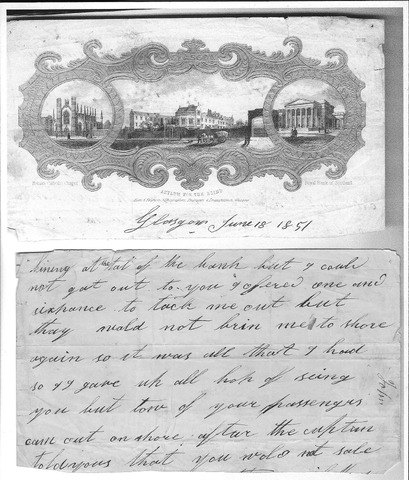 Roman Catholic Chapel
Royal Bank of Scotland
ASYLUM FOR THE BLIND
Glasgow June 18 1851
at the tal of the bank but I could
not got out to you I offered one and
sixhance to tack me out but
thay wold not brin me to shore
again so it was all that I had
so I gave uh all hoh of seing
you but tow of your passengers
cam out on shore after the captain
told yous that you wold not sale